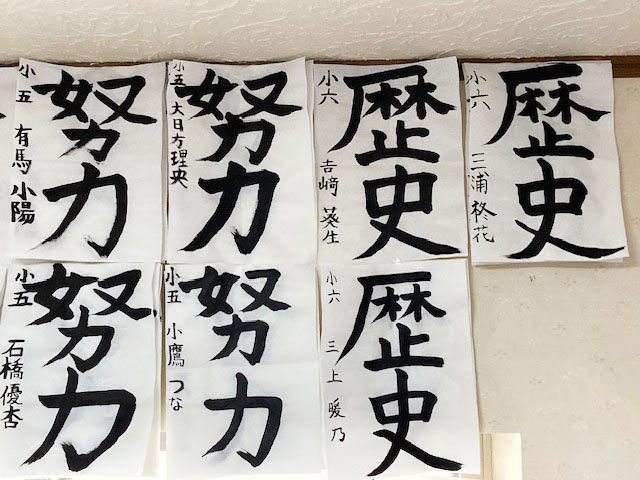 歴史
小六 三浦柊花
歴史
小六 吉﨑葵生
努力
小五 大日方理央
努力
小五 有馬小陽
歴史
小六 三上暖乃
努力
小五 小鷹つな
努力
小五 石橋優杏